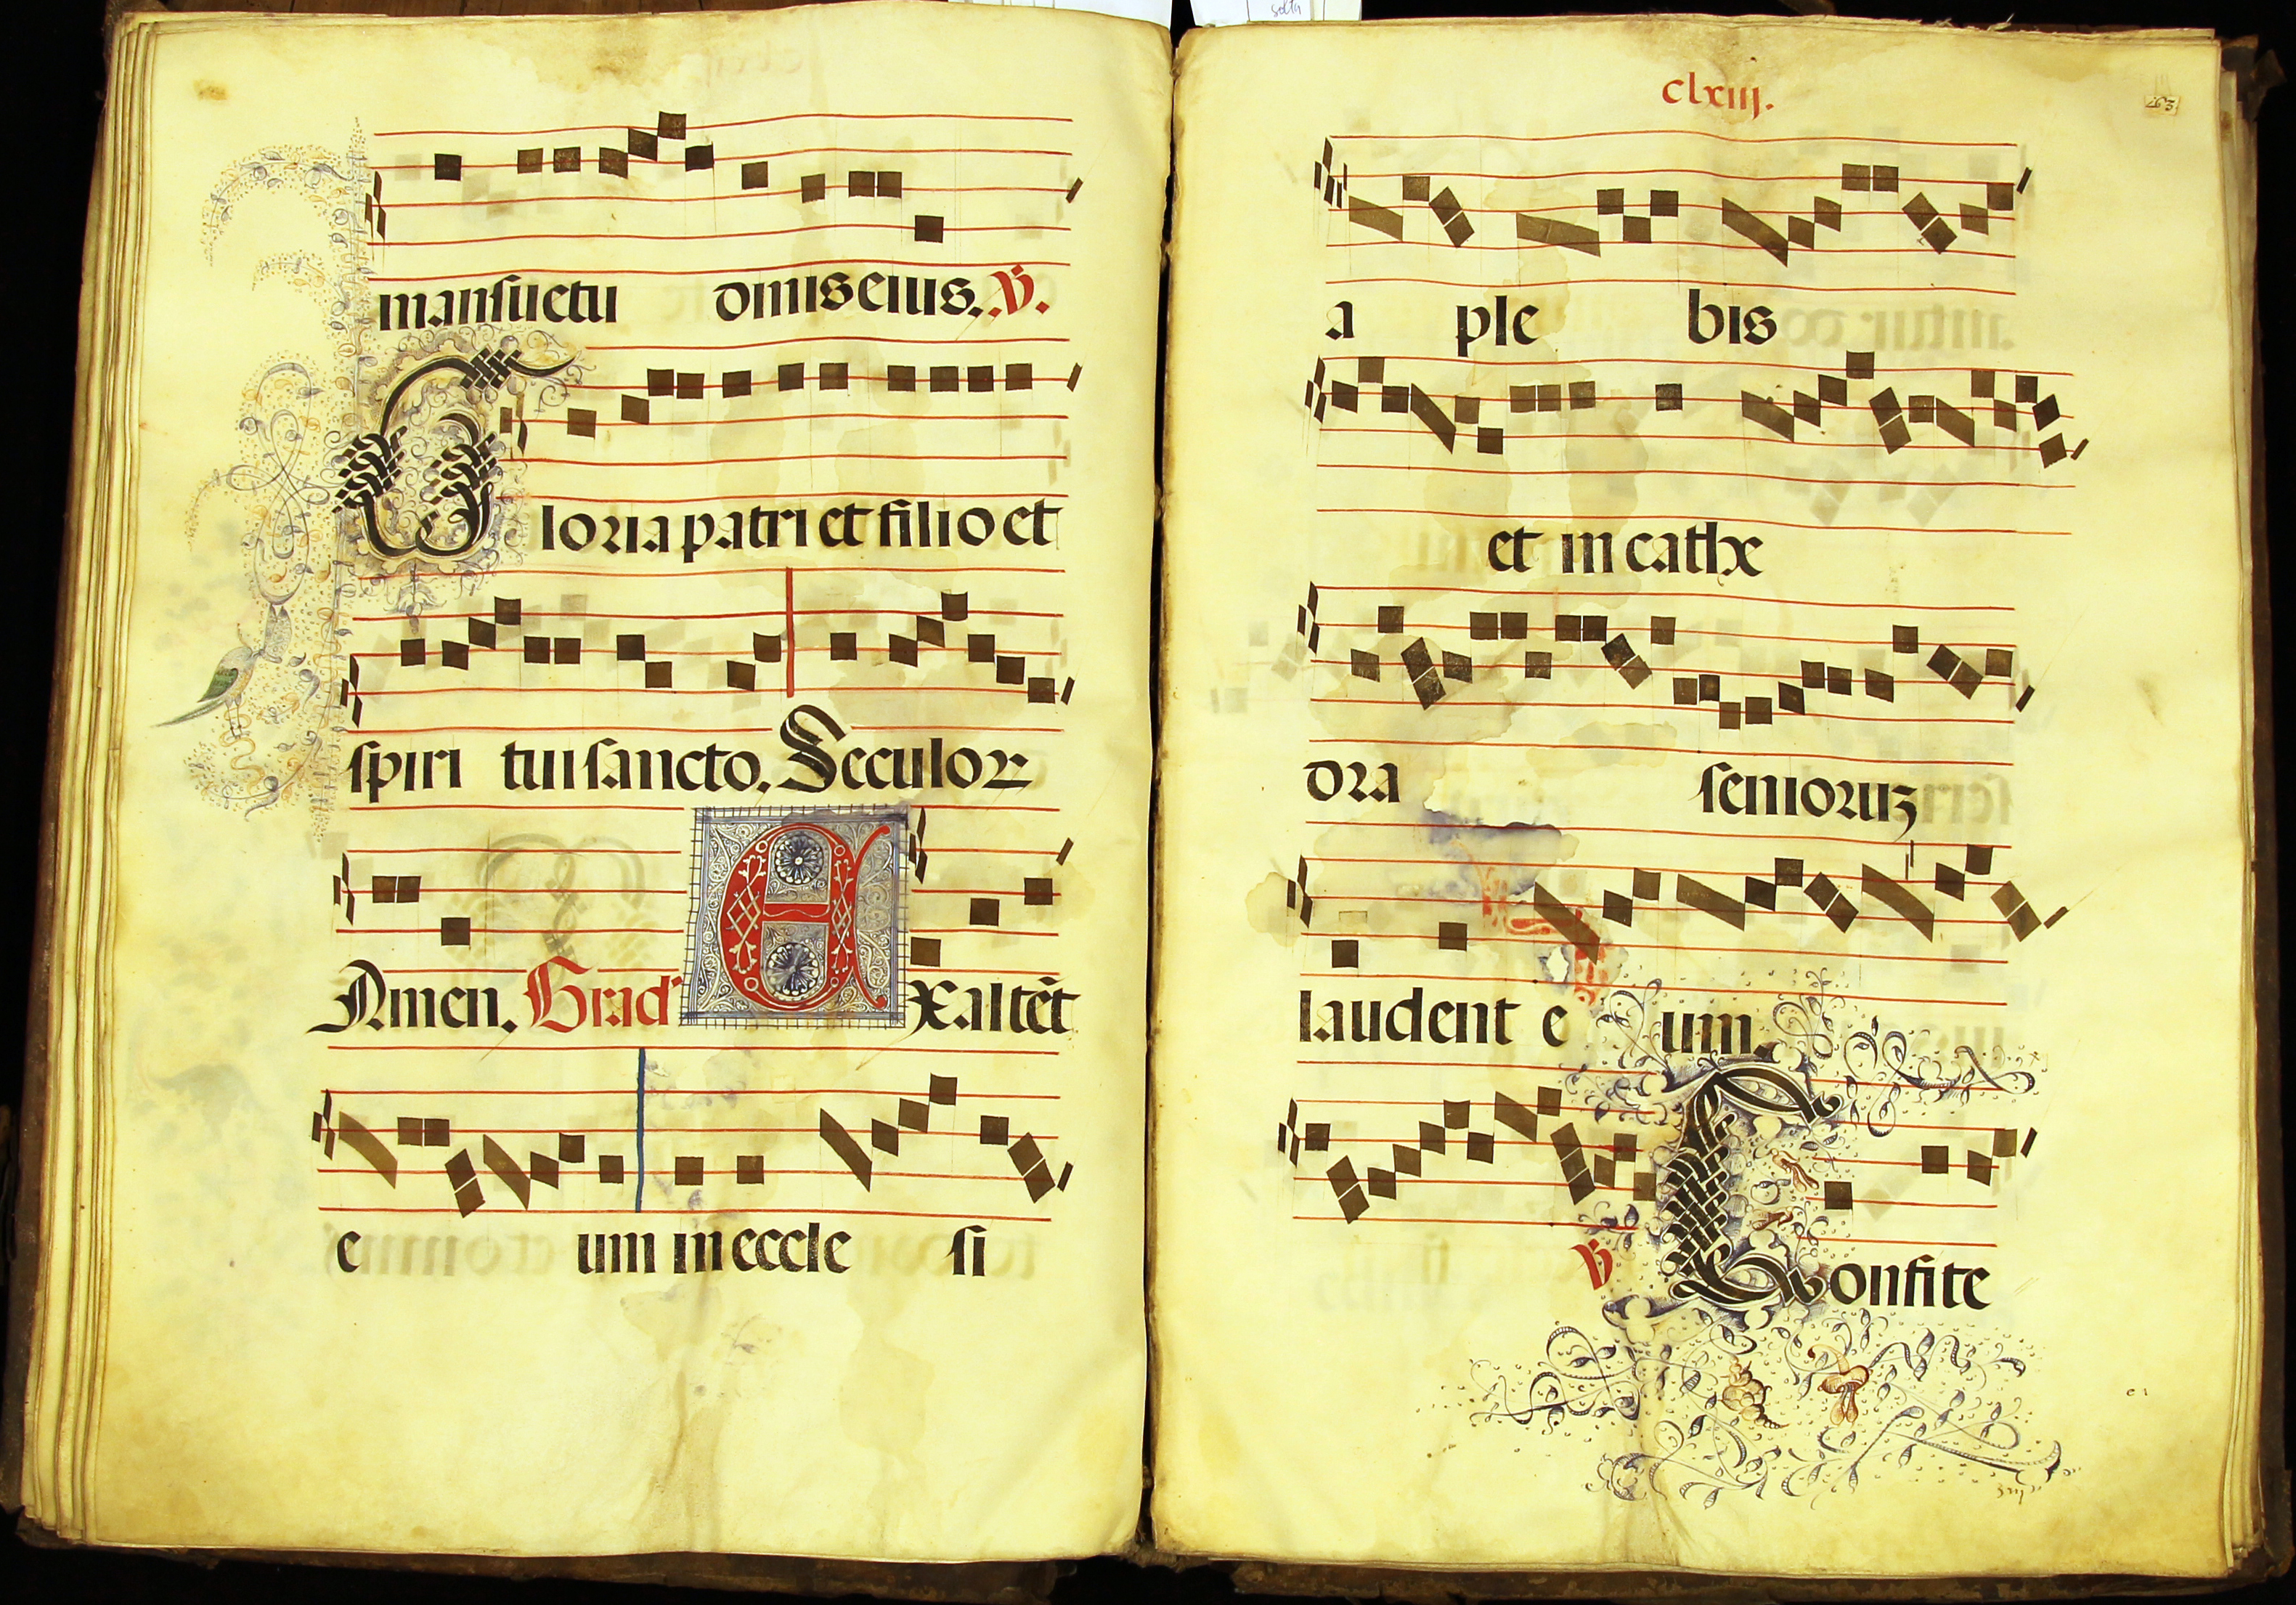 mansuetu dinis eius. V.
Gloria patri et filio et
spiri tui sancto. Seculor
Amen. Grad' Exaltēt
e um in eccle si
clxiij.
263
a ple bis
et in cathe
dra senioruʒ
laudent e um.
V Confite